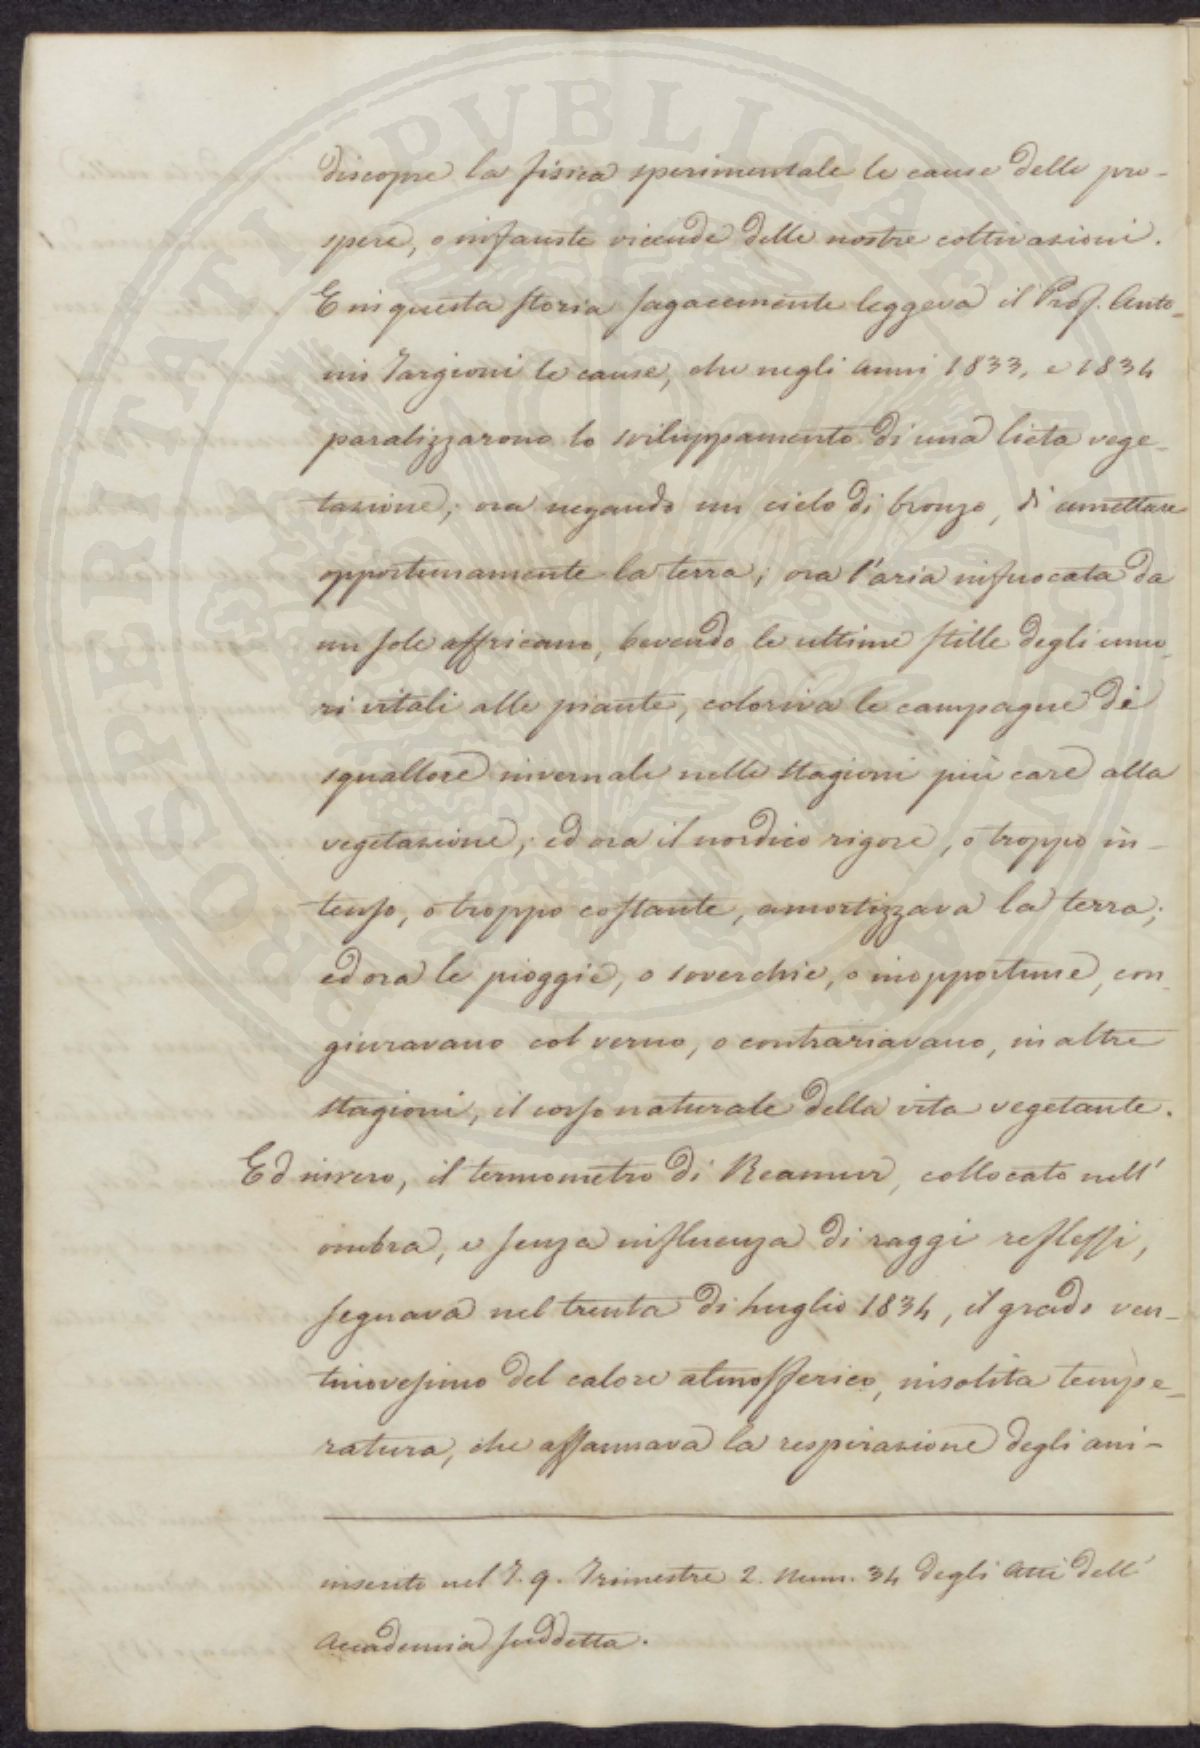 discopre la fisica sperimentale le cause delle pro-
spere, o infauste vicende delle nostre coltivazioni.
E in questa storia sagacemente leggeva il Prof. Anto-
nio Targioni le cause, che negli anni 1833, e 1834
paralizzarono lo sviluppamento di una lieta vege-
tazione; ora negando un cielo di bronzo, di umettare
opportunamente la terra; ora l'aria infuocata da
un sole affricano, bevendo le ultime stille degli umo-
ri vitali alle piante, coloriva le campagne di
squallore invernale nelle stagioni più care alla
vegetazione; ed ora il nordico rigore, o troppo in-
tenso, o troppo costante, amortizzava la terra;
ed ora le pioggie, o soverchie, o inopportune, con-
giuravano col verno, o contrariavano, in altre
stagioni, il corso naturale della vita vegetante.
Ed invero, il termometro di Reamur, collocato nell'
ombra, e senza influenza di raggi reflessi,
segnava nel trenta di Luglio 1834, il grado ven-
tinovesimo del calore atmosferico, insolita tempe-
ratura, che affannava la respirazione degli ani-
inserito nel T. 9. Trimestre 2. Num. 34 degli Atti dell'
Accademia suddetta.
PROSPERITATI PUBLICAE AUGENDAE